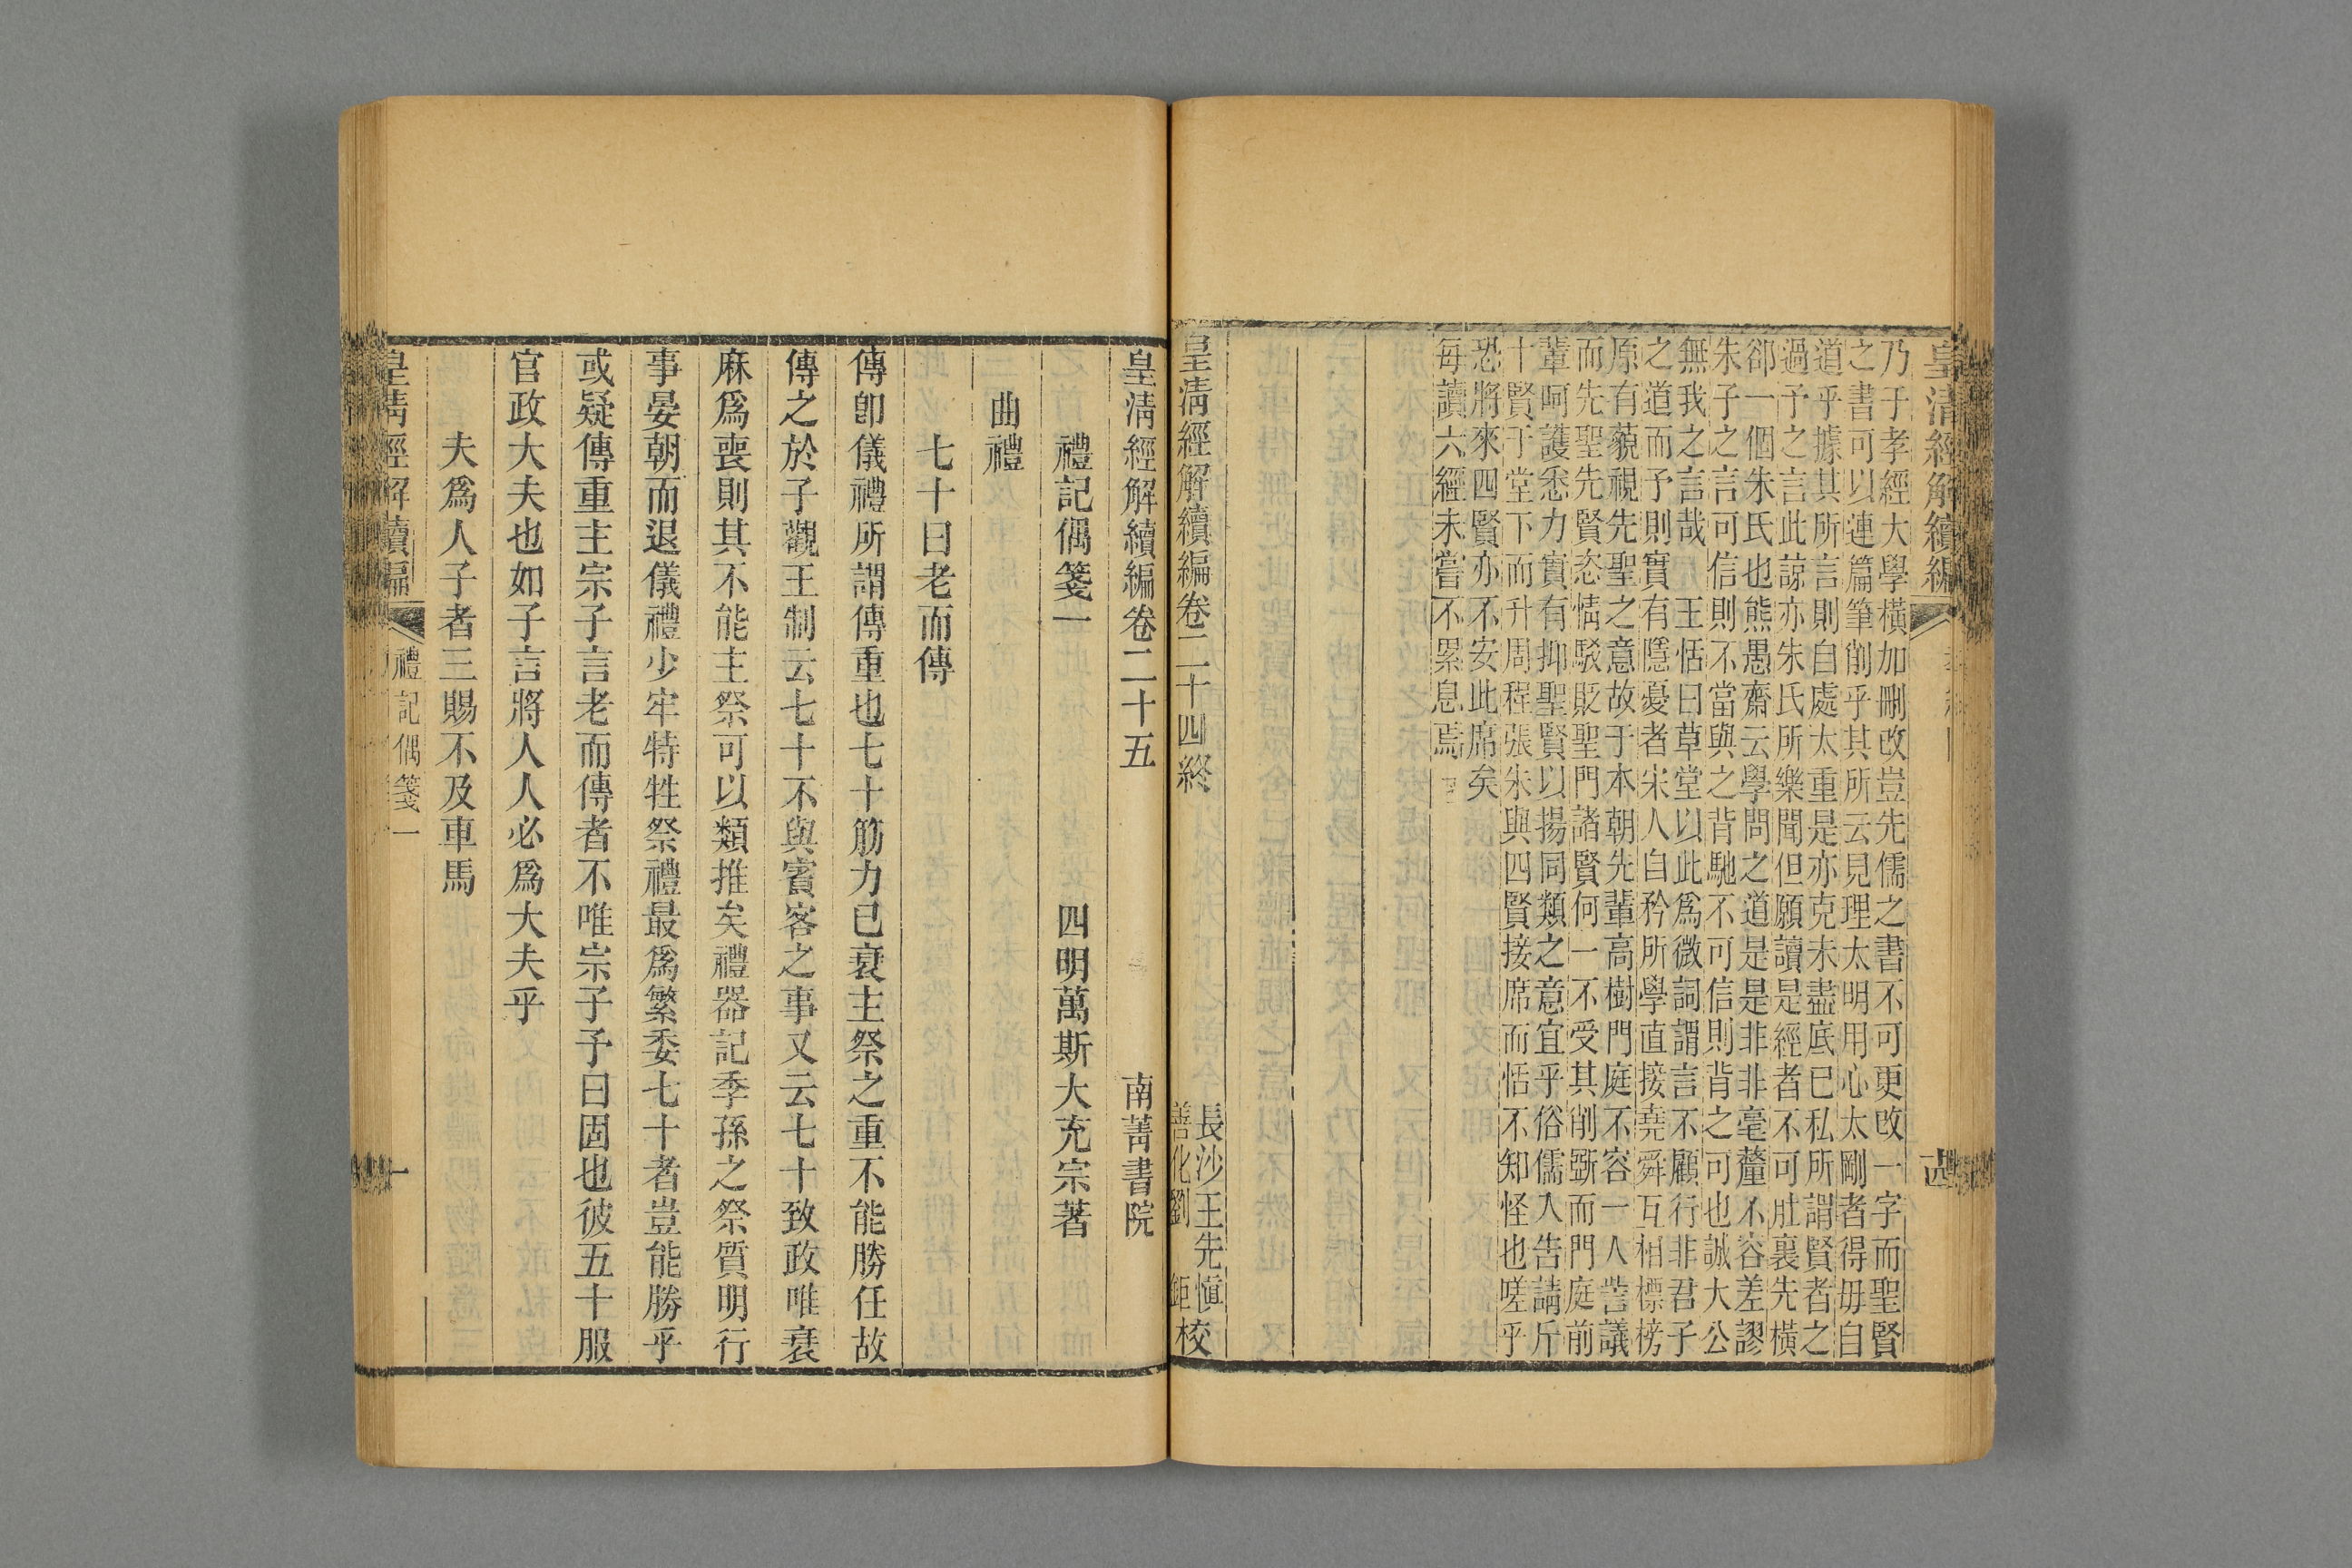 皇清經解續編
四
乃于孝經大學橫加刪改豈先儒之書不可更改一字而聖賢
之書可以連篇筆削乎其所云見理太明用心太剛者得毋自
道乎據其所言則自處太重是亦克未盡底已私所謂賢者之
過予之言此諒亦朱氏所樂聞但願讀是經者不可肚裏先橫
郤一個朱氏也熊愚齋云學問之道是是非非毫釐不容差謬
朱子之言可信則不當與之背馳不可信則背之可也誠大公
無我之言哉 王恬曰草堂以此為微詞謂言不顧行非君子
之道而予則實有隱憂者宋人自矜所學直接堯舜互相標榜
原有藐視先聖之意故于本朝先輩高樹門庭不容一人訾議
而先聖先賢恣情駁貶聖門諸賢何一不受其削斲而門庭前
輩呵護悉力實有抑聖賢以揚同類之意宜乎俗儒人告請斤
十賢于堂下而升周程張朱與四賢接席而恬不知怪也嗟乎
恐將來四賢亦不安此席矣
每讀六經未嘗不累息焉
皇清經解續編卷二十四終
長沙王先愼
善化劉 鉅校
皇清經解續編卷二十五 南菁書院
禮記偶箋一 四明萬斯大充宗著
曲禮
七十曰老而傳
傳卽儀禮所謂傳重也七十筋力已衰主祭之重不能勝任故
傳之於子觀王制云七十不與賓客之事又云七十致政唯衰
麻爲喪則其不能主祭可以類推矣禮器記季孫之祭質明行
事晏朝而退儀禮少牢特牲祭禮最爲繁委七十者豈能勝乎
或疑傳重主宗子言老而傳者不唯宗子予曰固也彼五十服
官政大夫也如子言將人人必爲大夫乎
夫爲人子者三賜不及車馬
皇清經解續編 禮記偶箋一 一